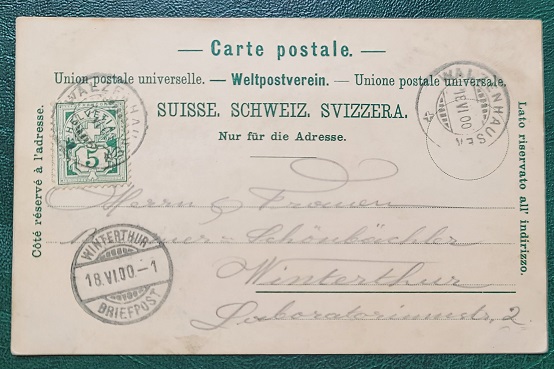 Carte postale.
Union postale universelle. — Weltpostverein. — Unione postale universale.
SUISSE. SCHWEIZ. SVIZZERA.
Nur für die Adresse.
Côté réservé à l'adresse.
Lato riservato all' indirizzo.
HELVETIA
5
WALZENHAUSEN
18.VI.00
WINTERTHUR
18.VI.00–1
BRIEFPOST
Herrn
Schönbächler
Winterthur
Laboratoriumstr. 2